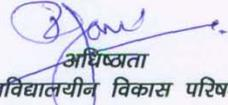 अधिष्ठाता
विद्यालयीन विकास परिष